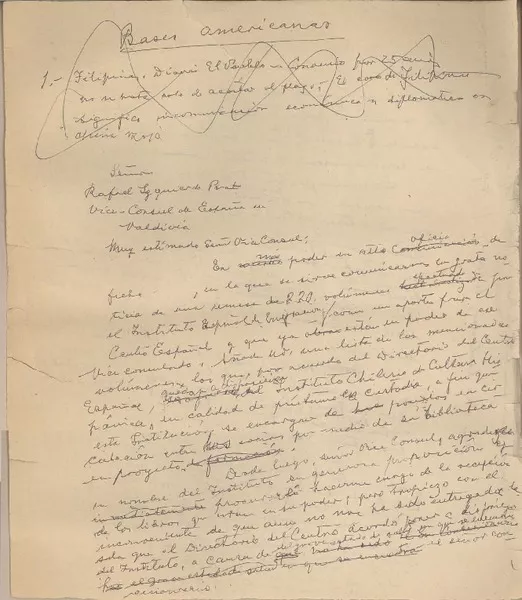 Bases americanas
1.- Filipinas. Diario El Pueblo - Convenio por 25 años
no se trata solo de acortar el plazo, El caso de Filipinas
significa económica y diplomática en
Señor
Rafael Izquierdo
Vice-Consul de España en
Valdivia
Muy estimado Señor Vice Consul:
En mi poder su atto oficio de
fecha , en la que se sirve comunicarnos la grata no
ticia de una remesa de 220 volúmenes
el Instituto Español de Emigración como un aporte para el
Centro Español y que ya obran están en poder de ese
Vice consulado. Añade Ud. una lista de los mencionados
volúmenes, los que por acuerdo del Directorio del Centro
Español, del Instituto Chileno de Cultura His
pánica, en calidad de préstamo en custodia, a fin que
esta Institución se encargue de ponerlos en cir
culación entre socios por medio de su Biblioteca
en proyecto.
Desde luego, señor Vice Consul, agradezco
en nombre del Instituto su generosa proposición
procuraré hacerme cargo de la recepción
de los libros que obran en su poder, pero tropiezo con el
inconveniente de que aún no nos ha sido entregada la
sala que el Directorio del Centro acordó
del Instituto, a causa de
el señor con